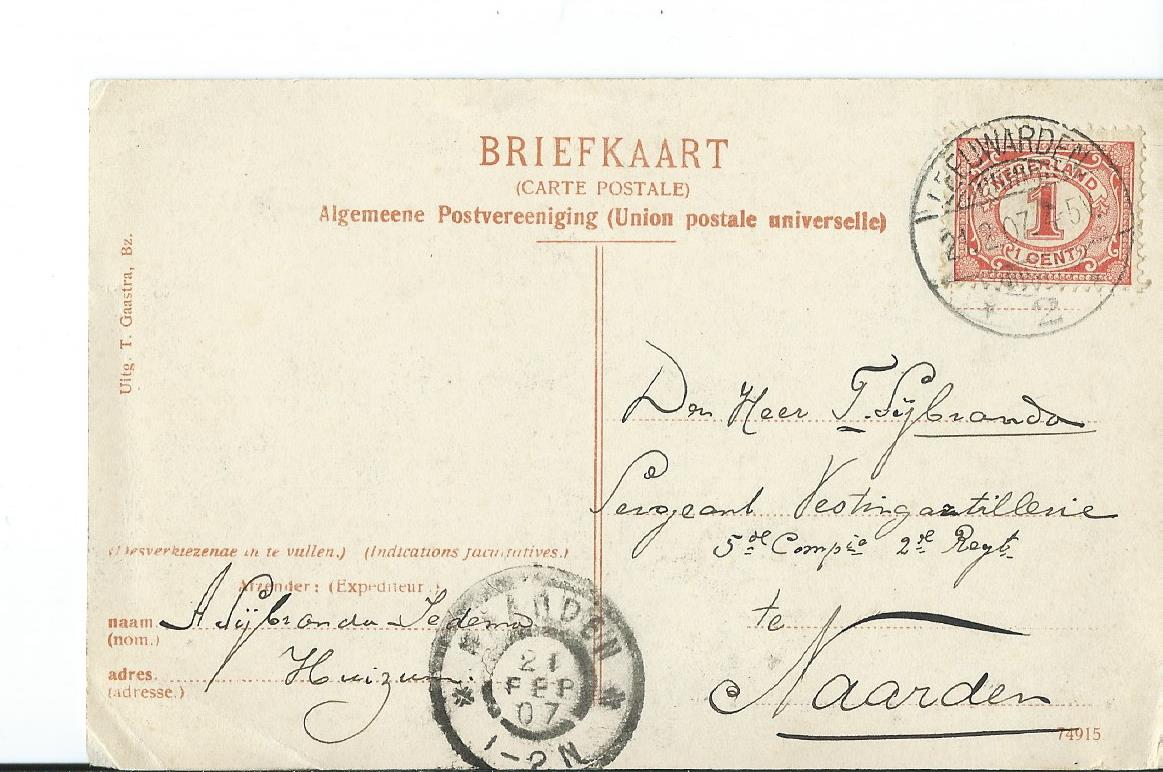 BRIEFKAART
(CARTE POSTALE)
Algemeene Postvereeniging (Union postale universelle)
Uitg. T. Gaastra, Bz.
LEEUWARDEN
21.2.07
2
NEDERLAND
1
1 CENT
Den Heer T. Sijbranda
Sergeant Vestingartillerie
5de Compie 2de Regt.
te
Naarden
(Desverkiezende in te vullen.) (Indications facultatives.)
Afzender: (Expediteur.)
naam A Sijbranda Iedema
(nom.)
adres. Huizum.
(adresse.)
NAARDEN
21
FEB
07
1-2N
74915